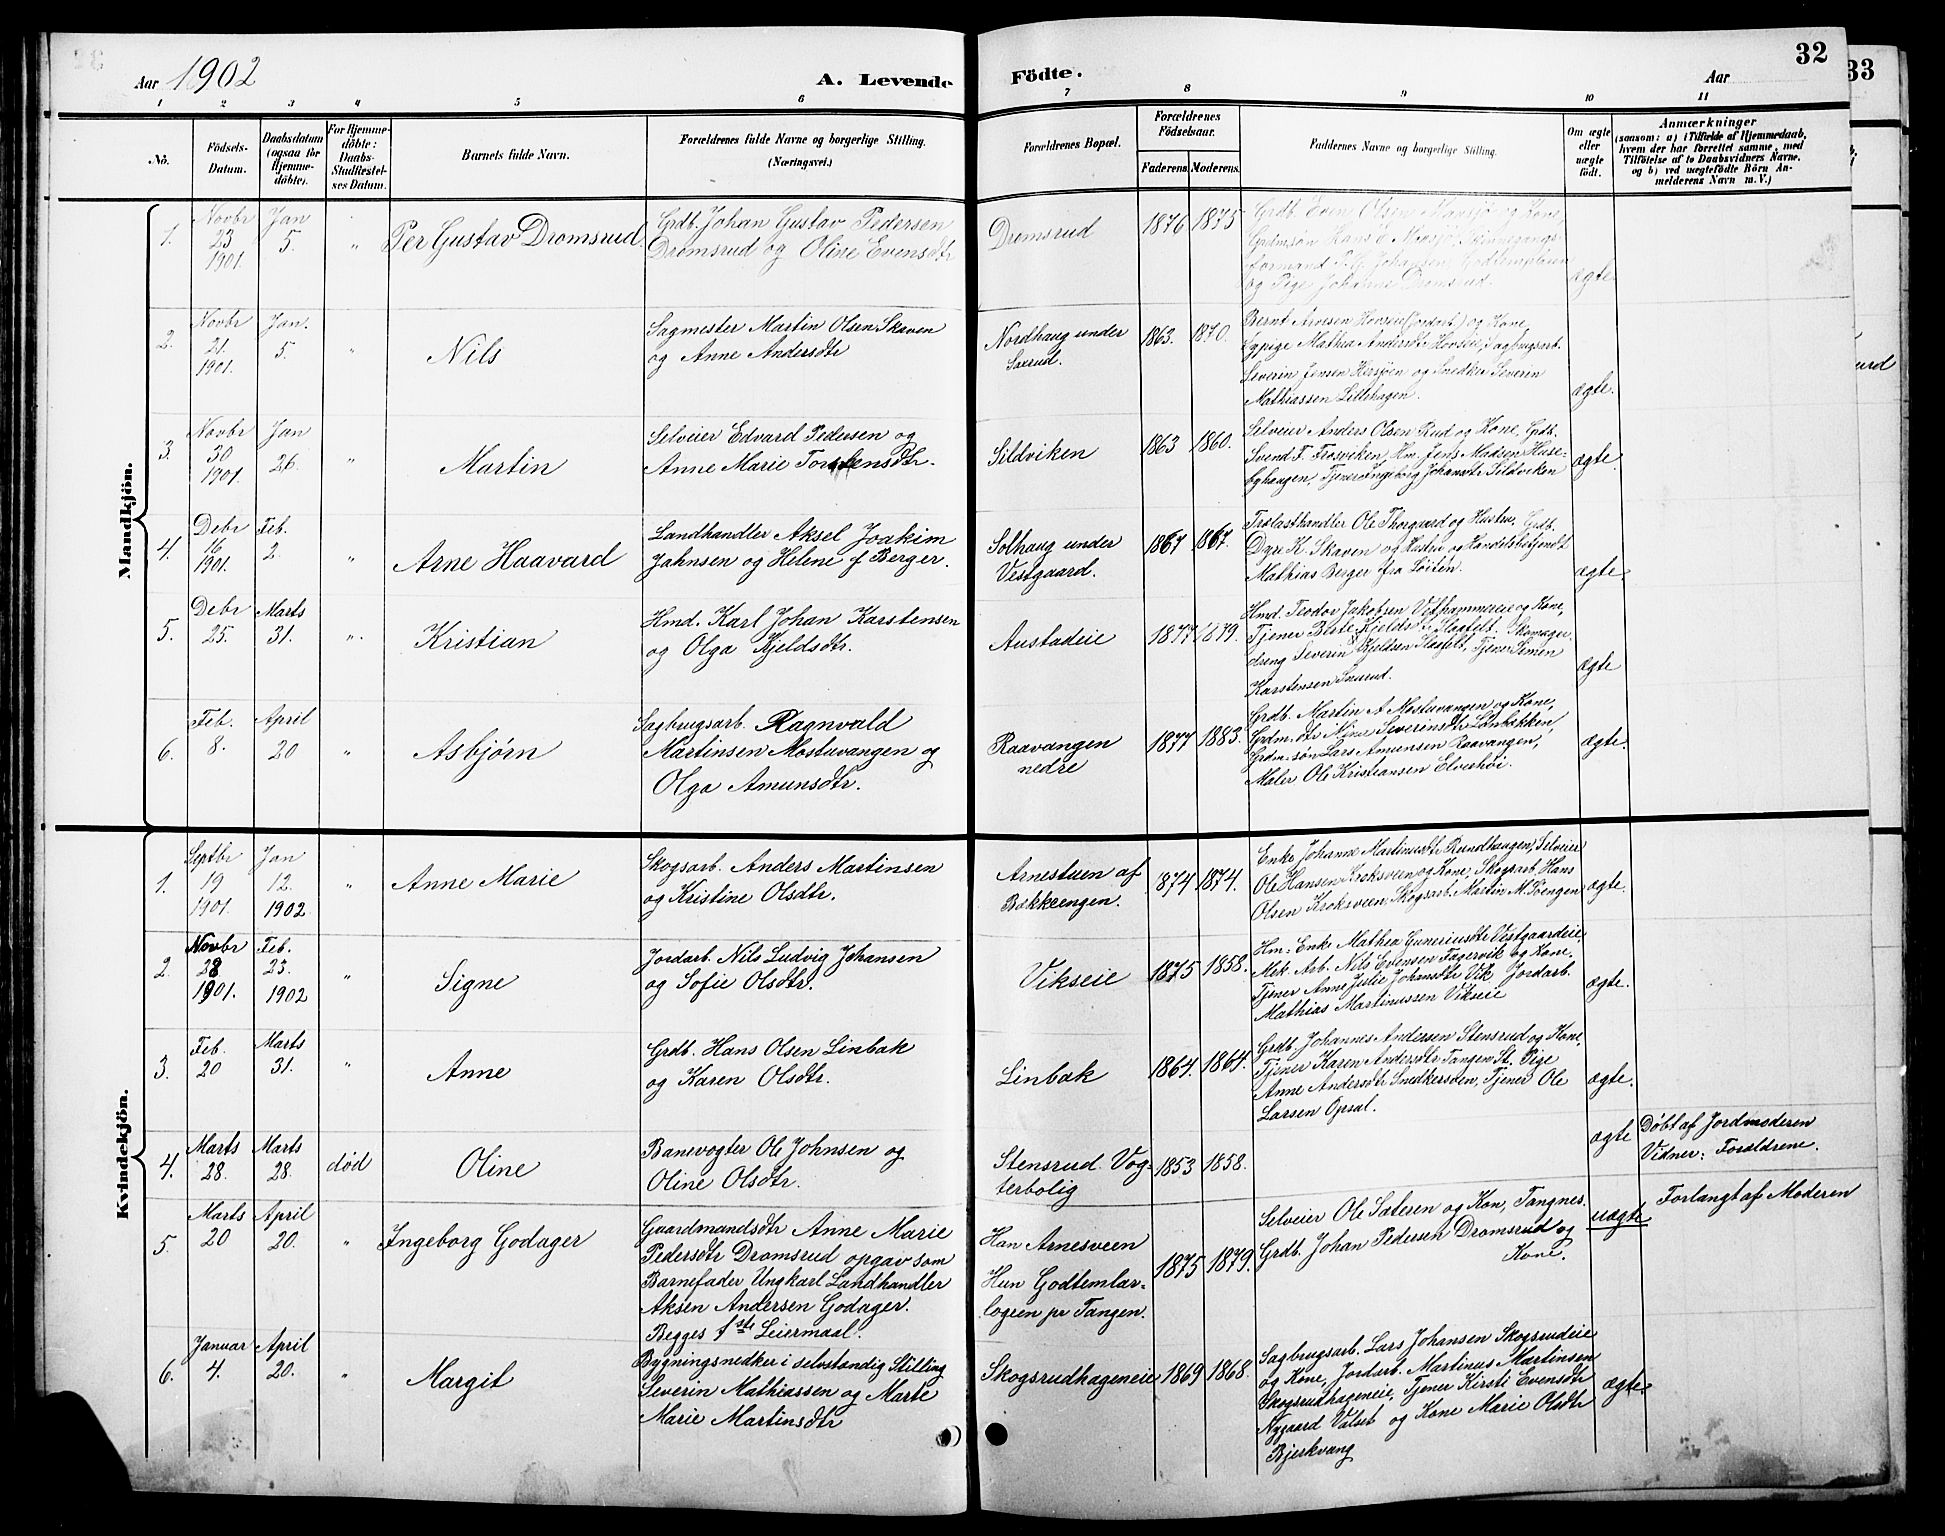 Aar 1902
A. Levende
Födte.
Aar
32
33
1 2 3 4 5 6 7 8 9 10 11
No.
Födsels-
Datum.
Daabsdatum
(ogsaa for
Hjemme-
döbte).
For Hjemme-
döbte:
Daabs-
Stadfæstel-
ses Datum.
Barnets fulde Navn.
Forældrenes fulde Navne og borgerlige Stilling.
(Næringsvei.)
Forældrenes Bopæl.
Forældrenes
Födselsaar.
Faderens.
Moderens.
Faddernes Navne og borgerlige Stilling.
Om ægte
eller
uægte
født.
Anmærkninger
(saasom: a) i Tilfælde af Hjemmedaab,
hvem der har forrettet samme, med
Tilföielse af to Daabsvidners Navne,
og b) ved uægtefödte Börn An-
melderens Navn m. V.)
Mandkjön.
1.
Novbr
23
1901.
Jan
5.
"
Per Gustav Dromsrud
Grdb. Johan Gustav Pedersen
Dromsrud og Oline Evensdtr
Dromsrud
1876
1875
Grdb. Even Olsen Movsjø og Kone,
Grdm.søn Hans E. Movsjø,
formand P. G. Johansen,
og Pige Johanne Dromsrud.
ægte
2.
Novbr
21.
1901.
Jan.
5.
"
Nils
Sagmester Martin Olsen Skaven
og Anne Andersdtr
Nordhaug under
Saxrud.
1863.
1870.
Bernt Arnesen Hovseie (jordarb.) og Kone,
Sypige Mathea Andersdtr Hovseie, Sagbrugsarb.
Severin Jensen Kersjøen og Snedker Severin
Mathiassen Lillehagen.
ægte.
3.
Novbr
30
1901.
Jan
26.
"
Martin
Selveier Edvard Pedersen og
Anne Marie Torstensdtr.
Sildviken
1863
1860.
Selveier Anders Olsen Rud og Kone, Grdb.
Svend F. Frosviken, Hm. Jens Madsen Huse-
byhaugen, Tjener Ingeborg Johansdtr Sildviken
ægte.
4.
Debr
16
1901.
Feb.
2.
"
Arne Haavard
Landhandler Aksel Joakim
Jahnsen og Helene f Berger.
Solhaug under
Vestgaard.
1867
1867.
Trælasthandler Ole Thorgaard og Hustru, Grdb.
Dyre K. Skaven og Hustru og Handelsbetjendt
Mathias Berger fra Løiten.
ægte.
5.
Debr
25.
Marts
31.
"
Kristian
Hmd. Karl Johan Karstensen
og Olga Kjeldsdtr.
Austadeie
1877
1879.
Hmd. Teodor Jakobsen Vethammereie og Kone,
Tjener Beate Kjeldsdtr Slaafelt. Skomager-
dreng Severin Kjeldsen Slaafelt, Tjener Simen
Karstensen Saxrud.
ægte
6.
Feb.
8.
April
20
"
Asbjørn
Sagbrugsarb. Ragnvald
Martinsen Mostuvangen og
Olga Amunsdtr.
Raavangen
nedre
1877
1883.
Grdb. Martin A Mostuvangen og Kone,
Grdm.dtr Mine Severinsdtr Lønbakken
Grdm.søn Lars Amunsen Raavangen,
Maler Ole Kristiansen Elveshøi.
ægte.
Kvindekjön.
1.
Septbr
19
1901.
Jan
12.
1902
"
Anne Marie
Skogsarb. Anders Martinsen
og Kristine Olsdtr.
Arnestuen af
Bækkeengen.
1874
1874.
Enke Johanne Martinusdtr Rundhaugen, Selveier
Ole Hansen Kroksveen og Kone, Skogsarb. Hans
Olsen Kroksveen, Skogsarb. Martin M. Soengen
ægte.
2.
Novbr
28
1901.
Feb.
23.
1902
"
Signe
Jordarb. Nils Ludvig Johansen
og Sofie Olsdtr.
Vikseie
1875
1858.
Hm. Enke Mathea Guneriusdtr Vestgaardeie,
Mek. Arb. Nils Evensen Fagervik og Kone.
Tjener Anne Julie Johansdtr Vik Jordarb.
Mathias Martinussen Vikseie
ægte.
3.
Feb.
20
Marts
31.
"
Anne
Grdb. Hans Olsen Linbak
og Karen Olsdtr.
Linbak
1864.
1864.
Grdb. Johannes Andersen Stensrud og Kone,
Tjener Karen Andersdtr Tangen St. Pige
Anne Andersdtr Snedkersveen, Tjener Ole
Larsen Opsal.
ægte.
4.
Marts
28.
Marts
28.
død
Oline
Banevogter Ole Johnsen og
Oline Olsdtr.
Stensrud Vog-
terbolig
1853
1858.
ægte
Døbt af Jordmoderen
Vidner: Forældrene.
5.
Marts
20
April
20.
"
Ingeborg Godager
Gaardmandsdtr Anne Marie
Pedersdtr Dromsrud opgav som
Barnefader Ungkarl Landhandler
Aksen Andersen Godager.
Begges 1ste Leiermaal.
Han Arnesveen
Hun Godtemlar-
logen pr Tangen.
1875
1879.
Selveier Ole Sæteren og Kon, Tangnes.
Grdb. Johan Pedersen Dromsrud og
Kone.
uægte
Forlangt af Moderen
6.
Januar
4.
April
20.
"
Margit
Bygningsnedker i selvstændig Stilling
Severin Mathiassen og Marte
Marie Martinsdtr
Skogsrudhageneie
1869
1868.
Sagbrugsarb. Lars Johansen Skogsrudeie
og Kone, Jordarb. Martinus Martinsen
Skogsrudhageneie, Tjener Kirsti Evensdtr
Nygaard Valset og Kone Marie Olsdtr
Bjerkvang
ægte.